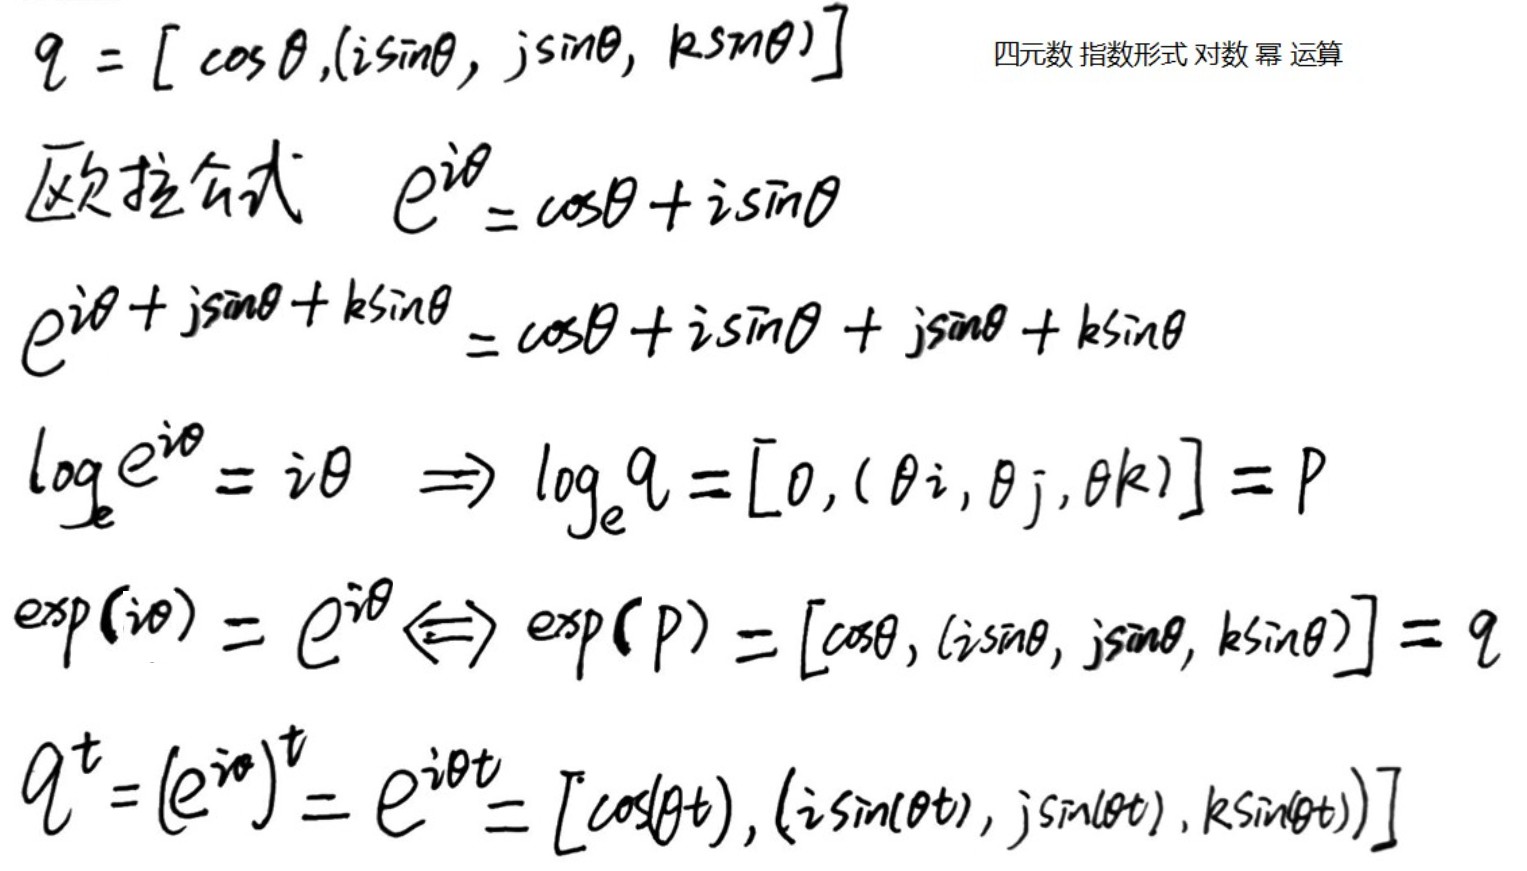 q = [cosθ,(isinθ, jsinθ, ksinθ)]
四元数 指数形式 对数 幂 运算
欧拉公式 e^{iθ} = cosθ + isinθ
e^{iθ + jsinθ + ksinθ} = cosθ + isinθ + jsinθ + ksinθ
log_e e^{iθ} = iθ ⇒ log_e q = [0, (θi, θj, θk)] = p
exp(iθ) = e^{iθ} ⇔ exp(p) = [cosθ, (isinθ, jsinθ, ksinθ)] = q
q^t = (e^{iθ})^t = e^{iθt} = [cos(θt), (isin(θt), jsin(θt), ksin(θt))]